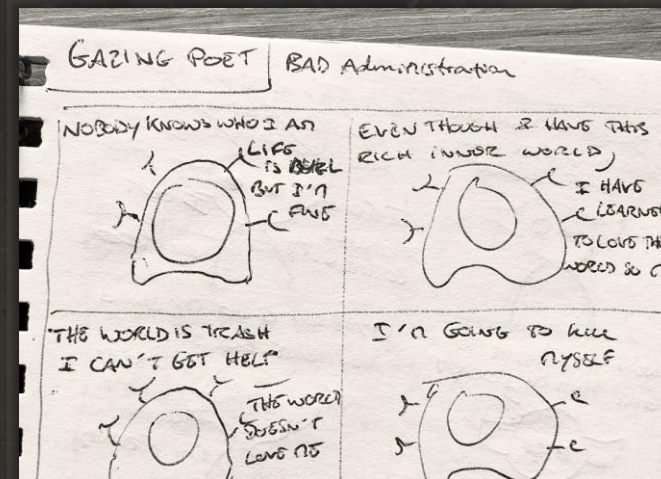 GAZING POET
BAD Administration
NOBODY KNOWS WHO I AM
LIFE
IS
BUT I'M
FINE
EVEN THOUGH I HAVE THIS
RICH INNER WORLD,
I HAVE
LEARNED
TO LOVE THE
WORLD SO
THE WORLD IS TRASH
I CAN'T GET HELP
THE WORLD
DOESN'T
LOVE ME
I'M GOING TO KILL
MYSELF